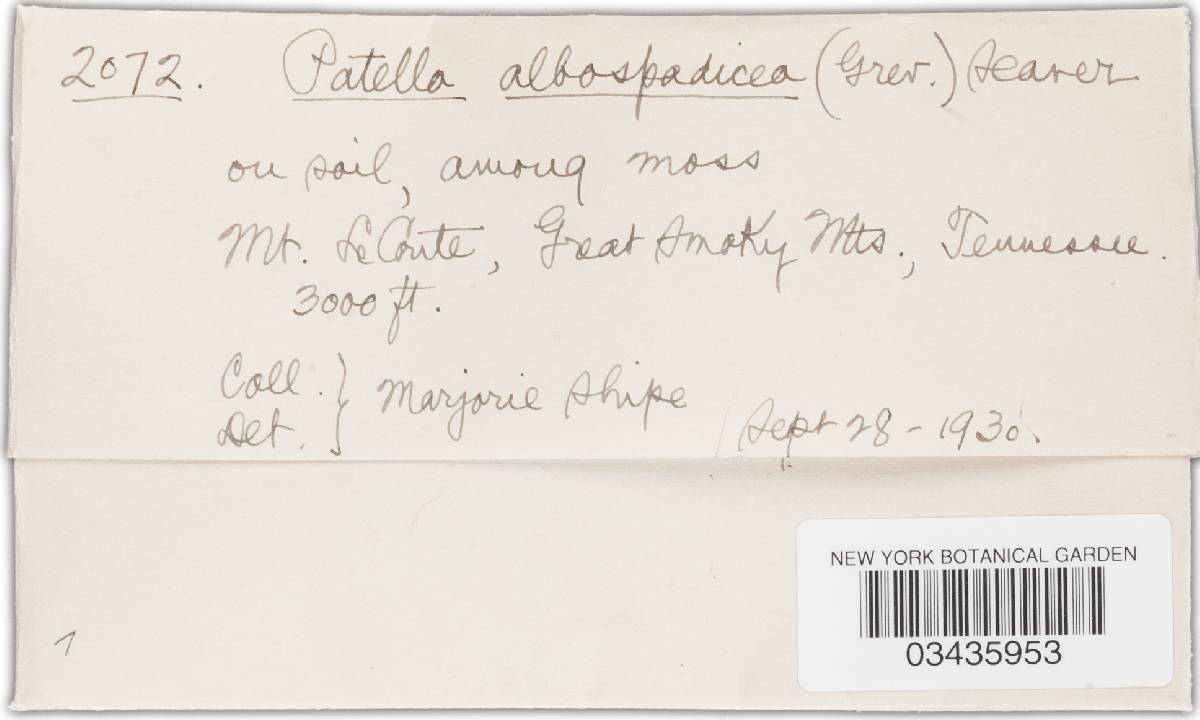 2072. Patella albospadicea (Grev.) Seaver
on soil, among moss
Mt. LeConte, Great Smoky Mts., Tennessee.
3000 ft.
Coll. } Marjorie Shipe
Det.
Sept 28 - 1930.
NEW YORK BOTANICAL GARDEN
03435953